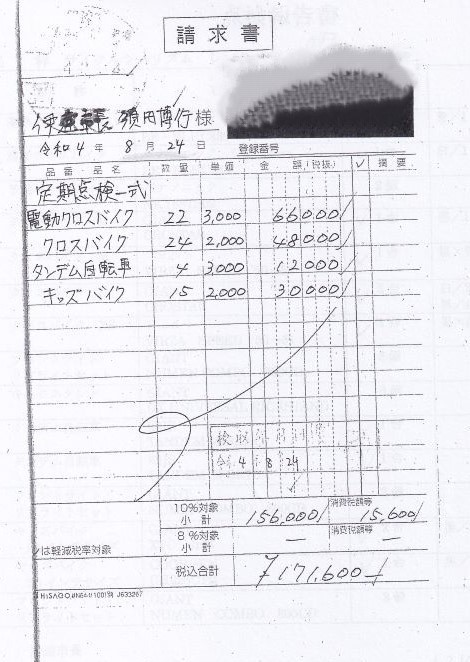 請求書
須田博行様
令和 4 年 8 月 24 日
登録番号
品番・品名 数量 単価 金額(税抜) ✓ 摘要
定期点検一式
電動クロスバイク 22 3,000 66000
クロスバイク 24 2,000 48000
タンデム自転車 4 3000 12000
キッズバイク 15 2,000 30000
検収
4 8 24
10%対象 小計 156,000 消費税額等 15,600
8%対象 小計 — 消費税額等 —
は軽減税率対象
税込合計 ¥171,600
HISAGO